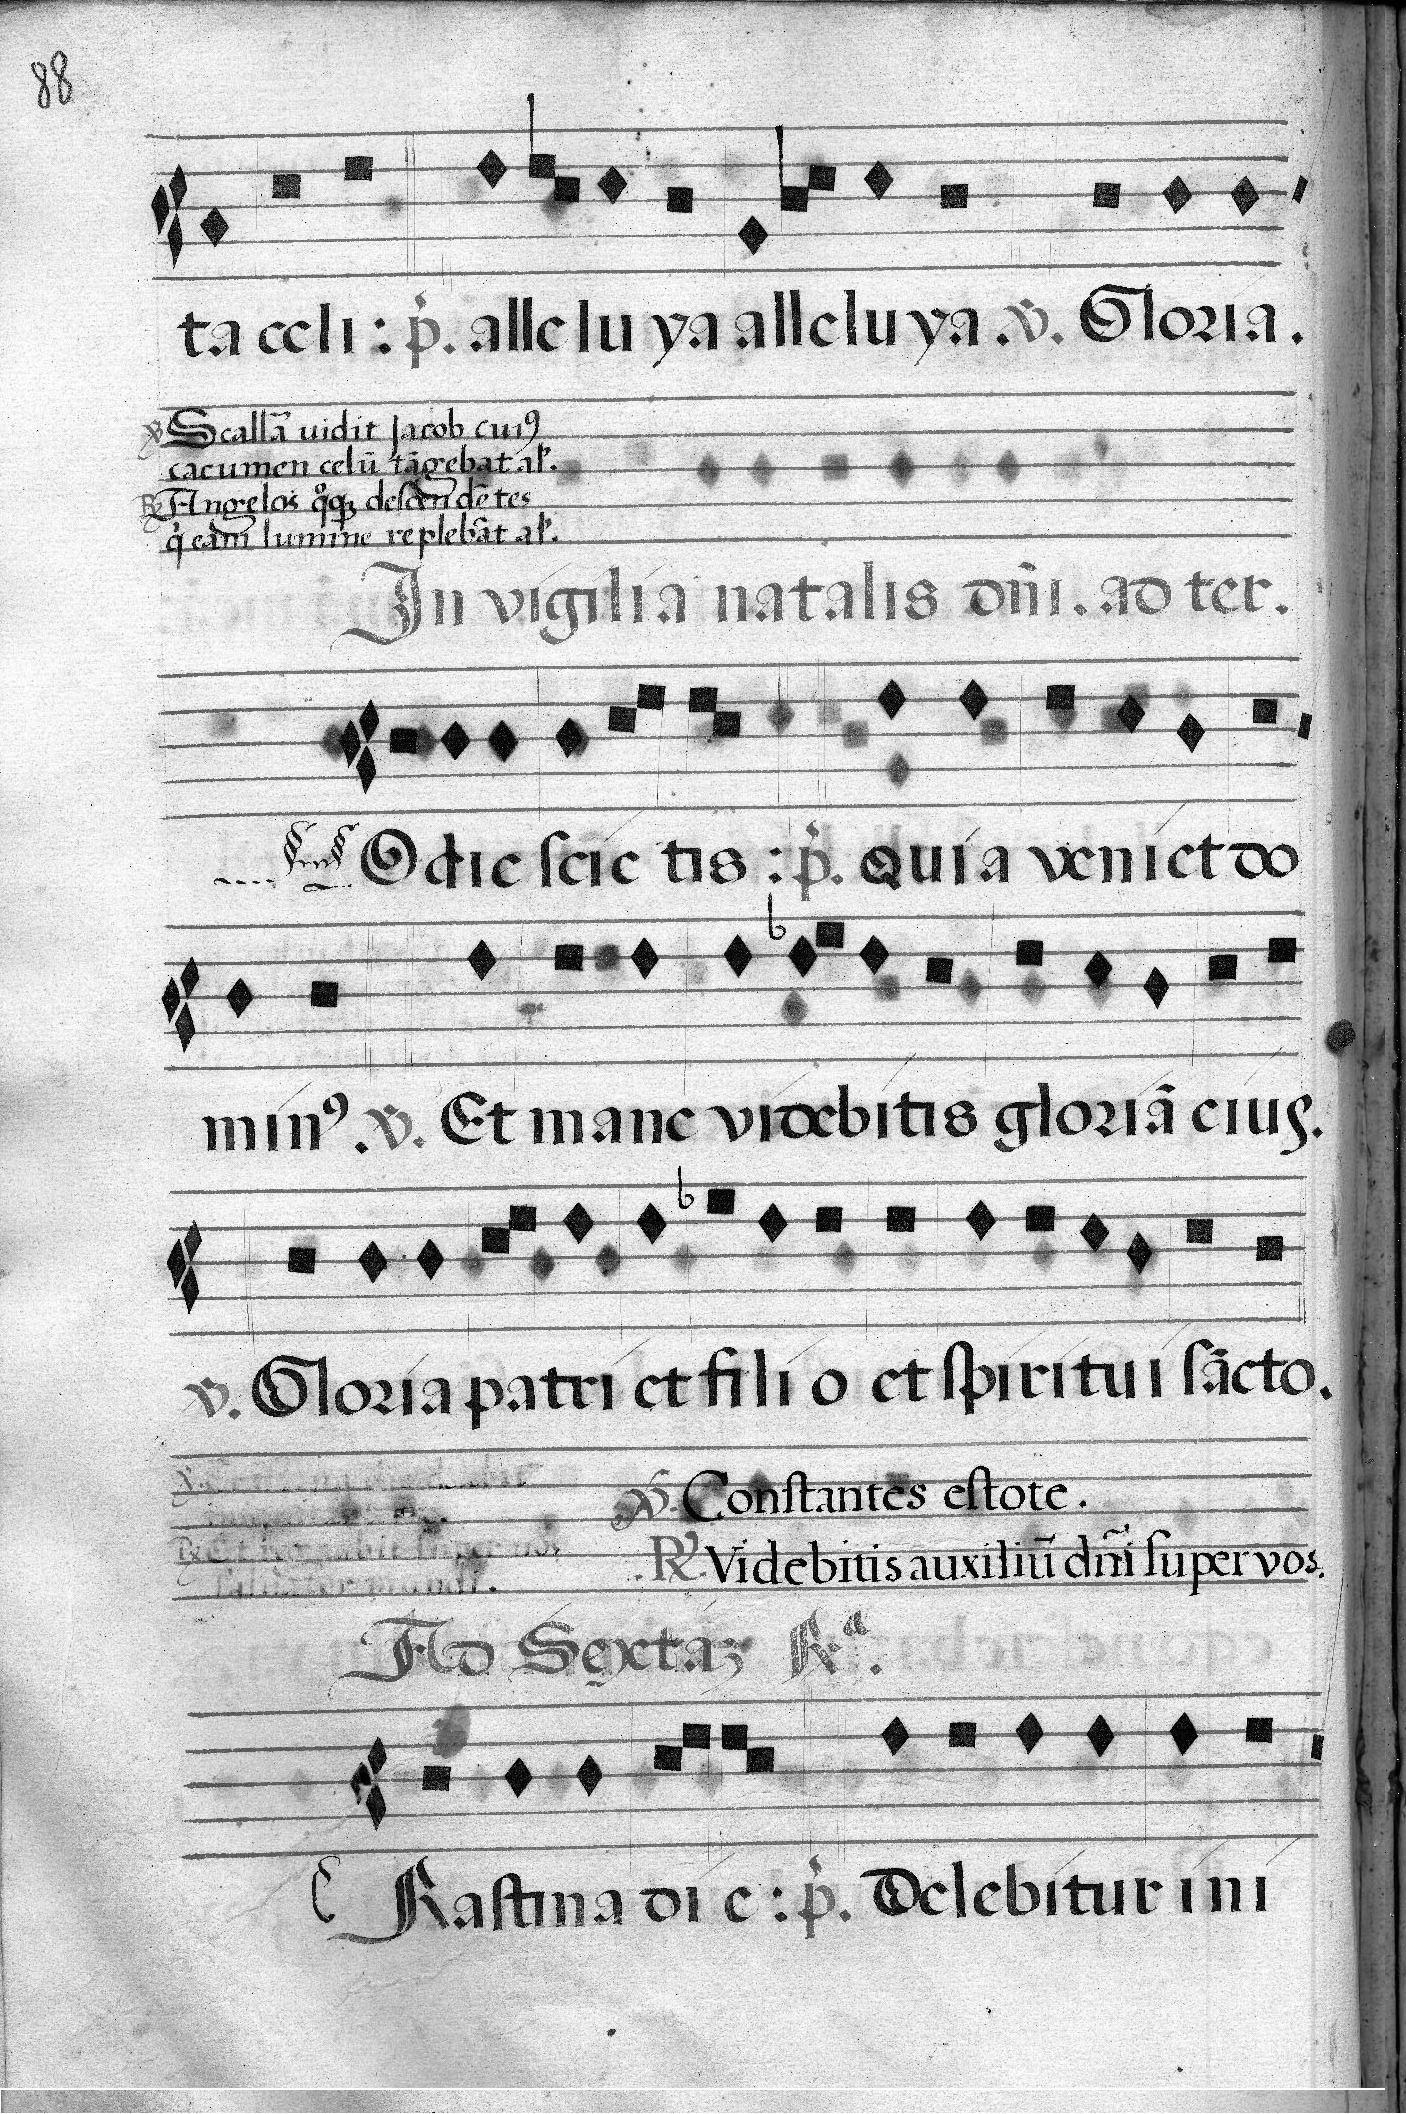 88
ta celi : p̃. alle lu ya alleluya . ℣. Gloria .
℣ Scallā uidit Jacob cuiꝰ
cacumen celū tāgebat al'.
℟ Angelos qͦqꝫ descēndētes
q' eam lumine replebāt al'.
In vigilia natalis dn̄i . ad ter .
Odie scie tis : p̃. Quia veniet do
minꝰ . ℣. Et mane videbitis gloriā eius .
℣. Gloria patri et fili o et spiritui sācto .
℣. Constantes estote .
℟. Videbitis auxiliū dn̄i super vos .
Ad Sextaꝫ Rᵃ .
C Rastina di e : p̃. Delebitur ini